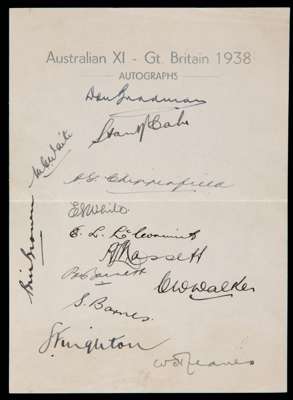 Australian XI - Gt. Britain 1938
AUTOGRAPHS
Don Bradman
Stan McCabe
M G Waite
A G Chipperfield
E S White
E. L. McCormick
A Hassett
Bill Brown
B Barnett
C W Walker
S. Barnes.